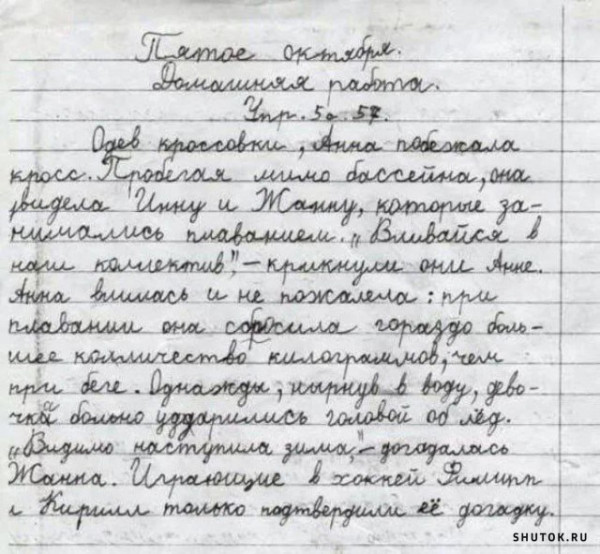 Пятое октября.
Домашняя работа.
Упр. 5а. 57.
Одев кроссовки, Анна побежала
кросс. Пробегая мимо бассейна, она
увидела Инну и Жанну, которые за-
нимались плаванием. „Вливайся в
наш коллектив", - крикнули они Анне.
Анна влилась и не пожалела: при
плавании она сбросила гораздо боль-
шее количество килограммов, чем
при беге. Однажды, нырнув в воду, дево-
чки больно ударились головой об лёд.
„Видимо наступила зима," - догадалась
Жанна. Играющие в хоккей Филипп
и Кирилл только подтвердили её догадку.
SHUTOK.RU